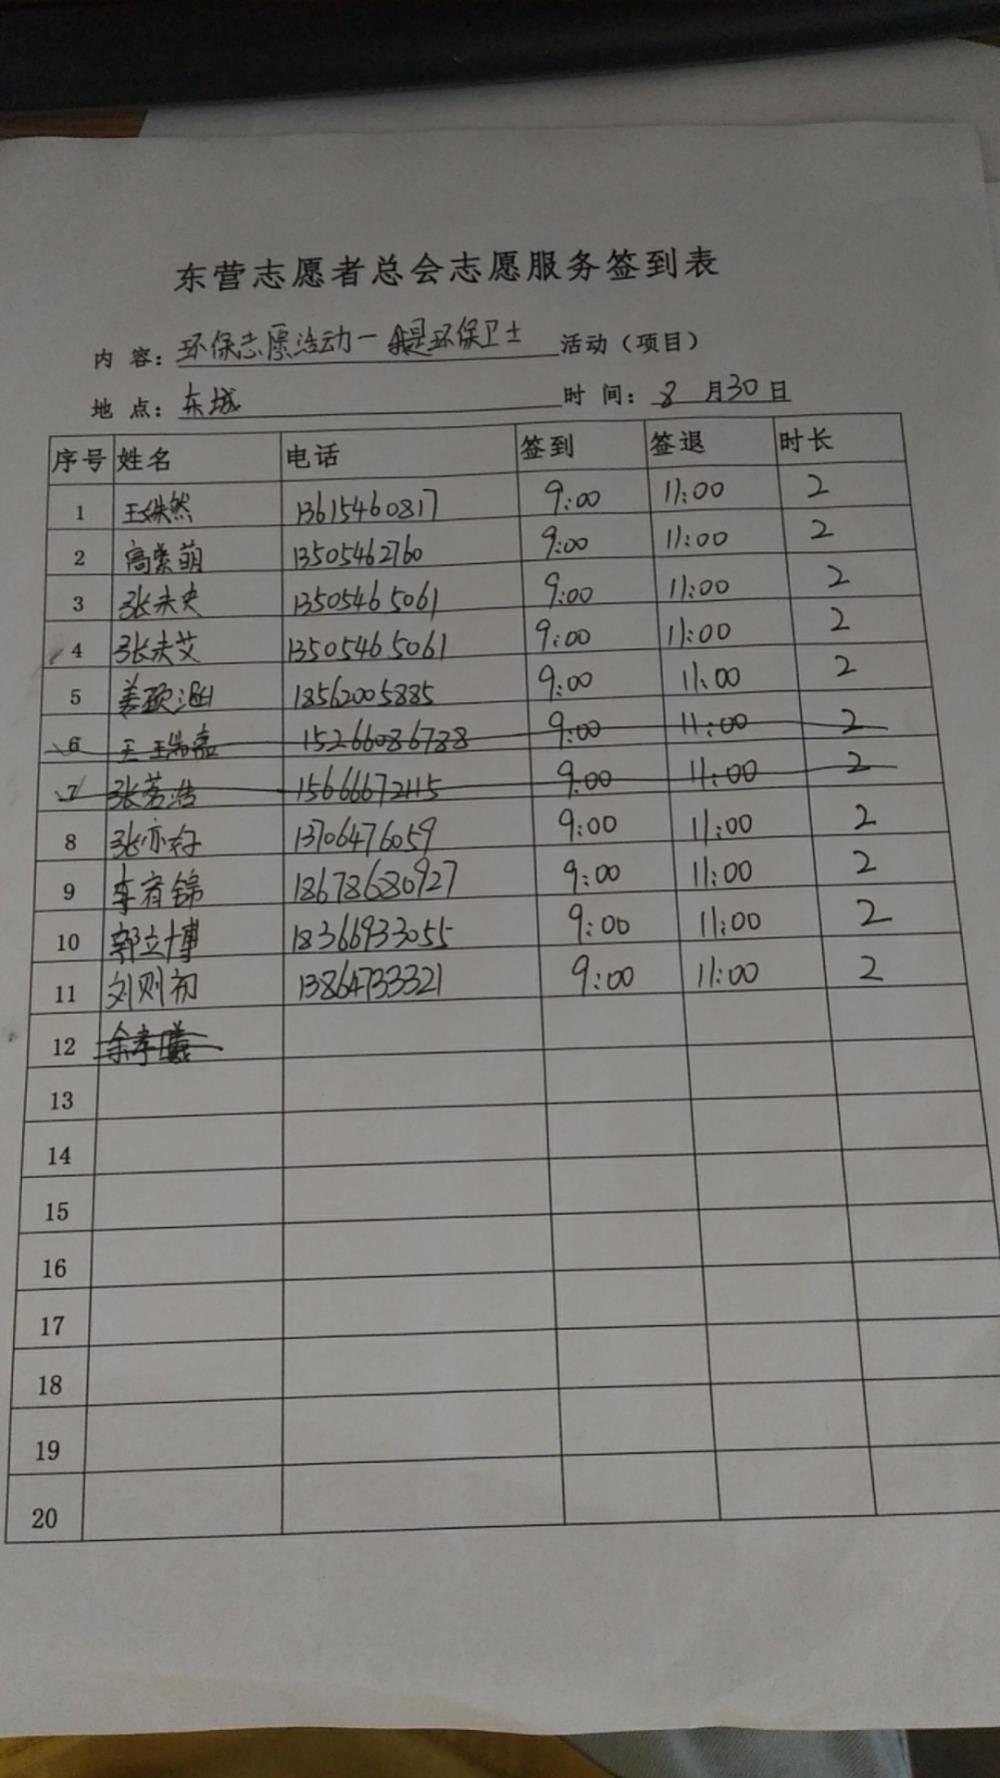 东营志愿者总会志愿服务签到表
内 容：环保志愿活动一我是环保卫士 活动（项目）
地 点：东城 时 间：8 月30日
序号 姓名 电话 签到 签退 时长
1 王然 13615460817 9:00 11:00 2
2 高紫萌 13505462760 9:00 11:00 2
3 张未史 13505465061 9:00 11:00 2
4 张未艾 13505465061 9:00 11:00 2
5 姜 18562005885 9:00 11:00 2
6 王瑞嘉 15266086788 9:00 11:00 2
7 张芳浩 15666672115 9:00 11:00 2
8 张亦 13706476059 9:00 11:00 2
9 李宥锦 18678680927 9:00 11:00 2
10 郭立博 18366933055 9:00 11:00 2
11 刘则初 13864733321 9:00 11:00 2
12 余孝曦
13
14
15
16
17
18
19
20